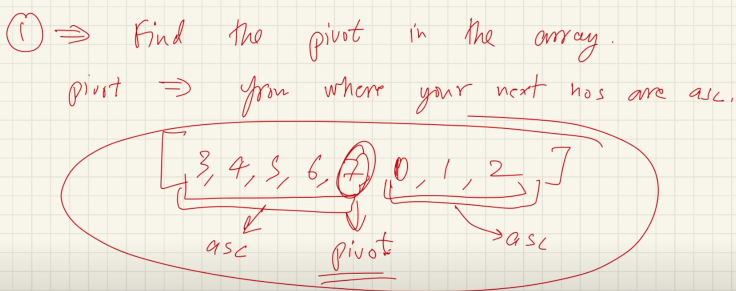 ① ⇒ Find the pivot in the array.
pivot ⇒ from where your next nos are asc.
[3, 4, 5, 6, 7, 0, 1, 2]
asc pivot asc